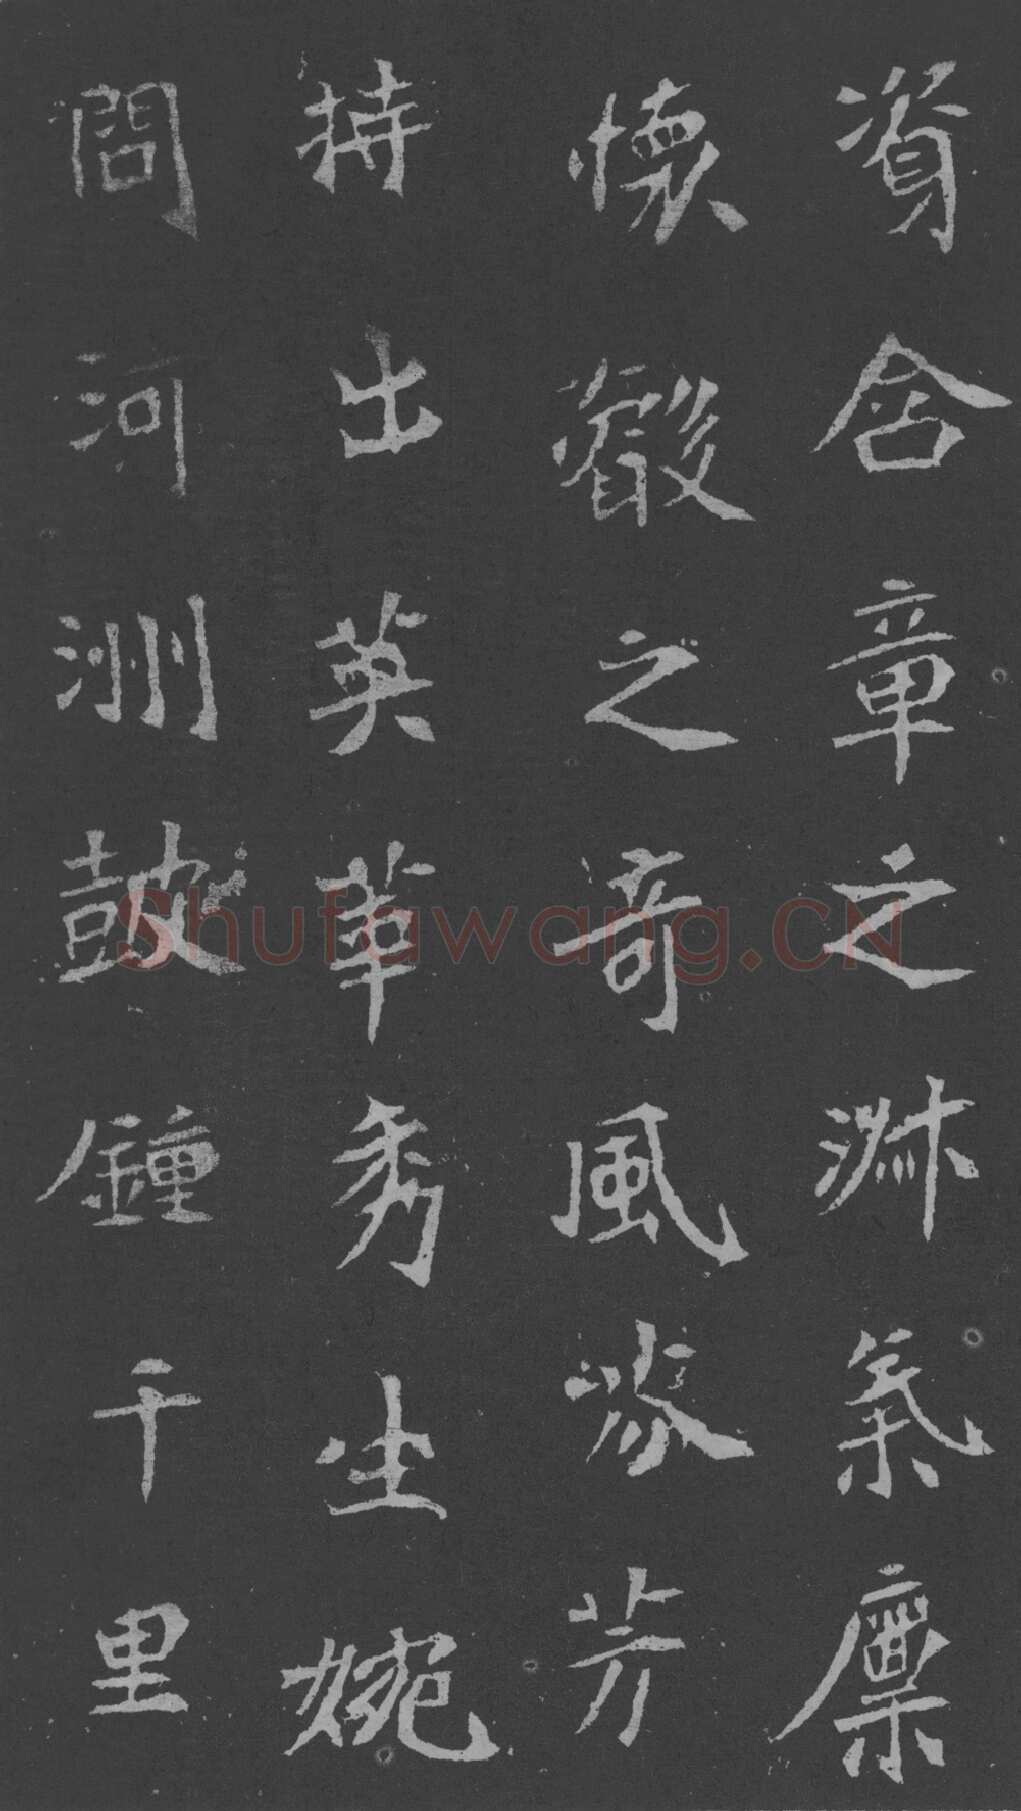 資含章之淋氣廩
懷㲄之奇風㳟芳
持出英華秀生婉
問河洲鼓鍾千里
Shufawang.CN